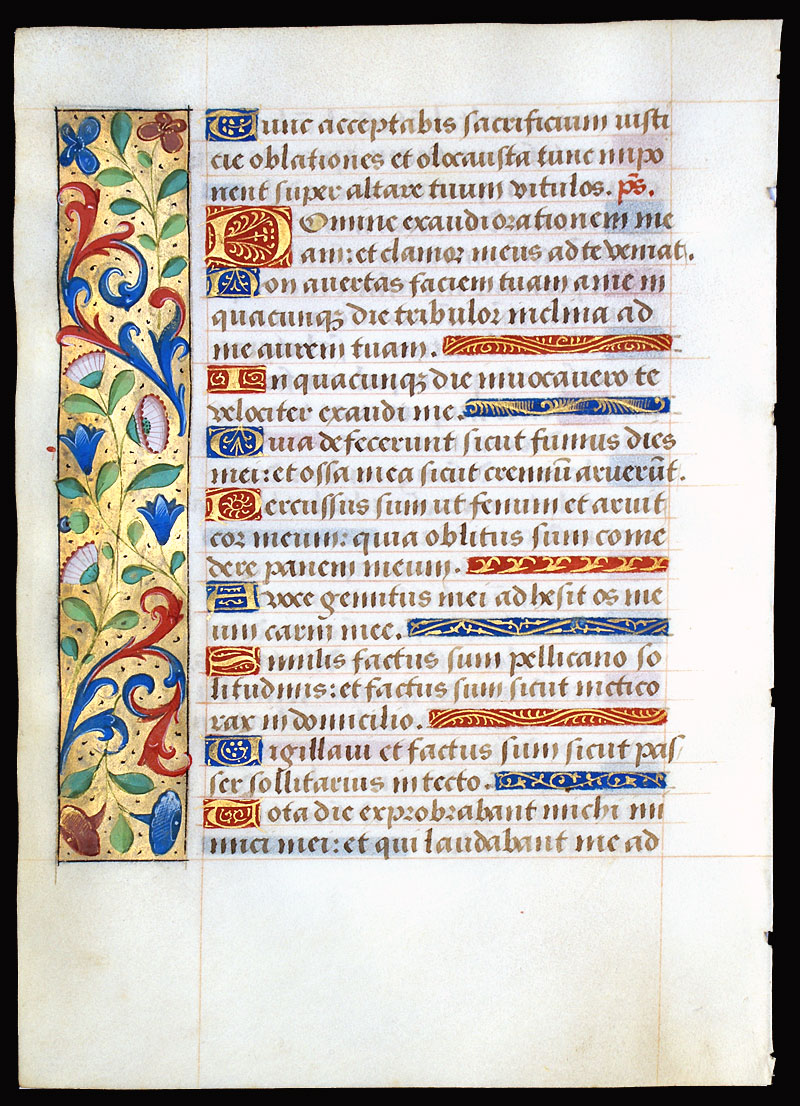 Tunc acceptabis sacrificium iusti
cie oblationes et olocausta tunc impo
nent super altare tuum vitulos. ps̄.
Domine exaudi orationem me
am: et clamor meus ad te veniat.
Non avertas faciem tuam a me in
quacunqꝫ die tribulor inclina ad
me aurem tuam.
In quacunqꝫ die invocavero te
velociter exaudi me.
Quia defecerunt sicut fumus dies
mei: et ossa mea sicut cremiū aruerūt.
Percussus sum ut fenum et aruit
cor meum: quia oblitus sum come
dere panem meum.
A voce gemitus mei adhesit os me
um carni mee.
Similis factus sum pellicano so
litudinis: et factus sum sicut nictico
rax in domicilio.
Vigillavi et factus sum sicut pas
ser sollitarius in tecto.
Tota die exprobrabant michi ini
mici mei: et qui laudabant me ad